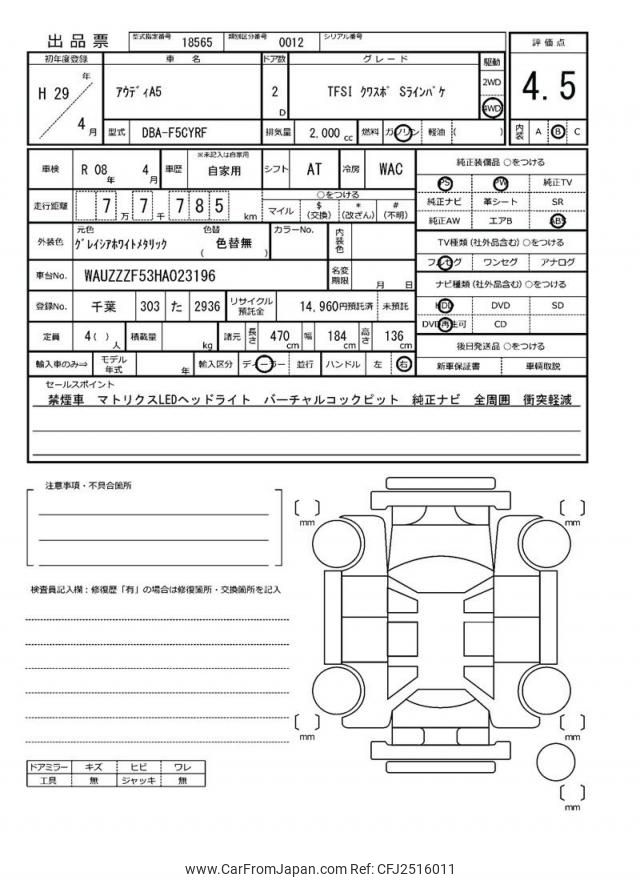 出品票 型式指定番号 18565 類別区分番号 0012 シリアル番号
初年度登録 車 名 ドア数 グレード 駆動 評価点
H 29 年 4 月 アウディA5 2 D TFSI クワスポ Sラインパケ 2WD 4WD 4.5
型式 DBA-F5CYRF 排気量 2,000 cc 燃料 ガソリン 軽油 ( ) 内装 A B C
車検 R 08 年 4 月 車歴 ※未記入は自家用 自家用 シフト AT 冷房 WAC 純正装備品 ○をつける
PS PW 純正TV
走行距離 7 万 7 千 7 8 5 km ○をつける
マイル $ (交換) * (改ざん) # (不明)
純正ナビ 革シート SR
純正AW エアB ABS
外装色 元色 グレイシアホワイトメタリック 色替 ( 色替無 ) カラーNo. 内装色
TV種類 (社外品含む) ○をつける
フルセグ ワンセグ アナログ
車台No. WAUZZZF53HA023196 名変期限 月 日
ナビ種類 (社外品含む) ○をつける
登録No. 千葉 303 た 2936 リサイクル預託金 14,960円預託済 未預託
HDD DVD SD
DVD再生可 CD
定員 4 ( ) 人 積載量 kg 諸元 長さ 470 cm 幅 184 cm 高さ 136 cm
後日発送品 ○をつける
輸入車のみ⇒ モデル年式 年 輸入区分 ディーラー 並行 ハンドル 左 右 新車保証書 車輌取説
セールスポイント
禁煙車 マトリクスLEDヘッドライト バーチャルコックピット 純正ナビ 全周囲 衝突軽減
注意事項・不具合箇所
mm
mm
検査員記入欄：修復歴「有」の場合は修復箇所・交換箇所を記入
mm
mm
ドアミラー キズ ヒビ ワレ
工具 無 ジャッキ 無
mm
www.CarFromJapan.com Ref: CFJ2516011